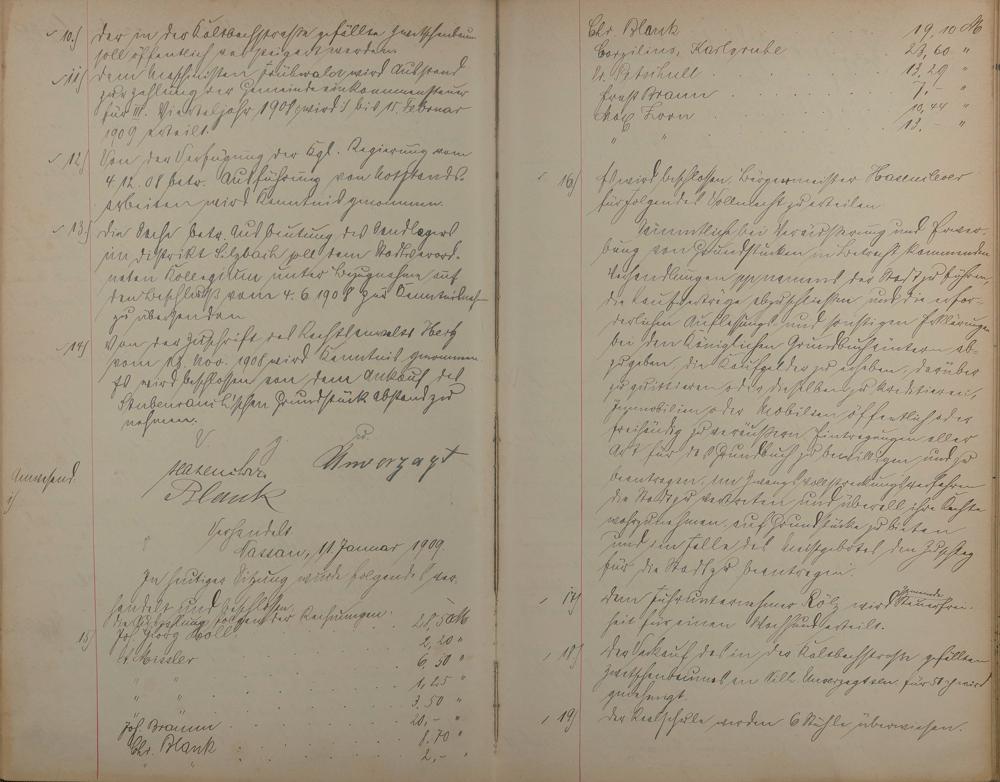 10.) der in der Kaltbachstraße gefällte Zwetschenbaum
soll öffentlich versteigert werden.
11) dem Maschinisten Trübwald wird Ausstand
zur Zahlung der Gemeindeeinkommensteuer
für III. Vierteljahr 1908 wird bis 15. Februar
1909 erteilt.
12) Von der Verfügung der Kgl. Regierung vom
4.12.08 betr. Ausführung von Notstands-
arbeiten wird Kenntnis genommen.
13) Die Sache betr. Ausbeutung des Sandlagers
im Distrikt Sulzbach soll dem Stadtverord-
neten Kollegium unter Bezugnahme auf
den Beschluß vom 4.6.1908 zur Kenntnisnahme
zu übersenden
14) Von der Zuschrift des Rechtsanwalts Herz
vom Nov. 1908 wird Kenntnis genommen
Es wird beschlossen von dem Ankauf des
Grundstück Abstand zu
nehmen.
Hasenclever
Unverzagt
Blank
Anwesend
Verhandelt
Nassau, 11 Januar 1909
In heutiger Sitzung wurde folgendes ver-
handelt und beschlossen.
15) die Zahlung folgender Rechnungen:
Joh. Georg Noll 28,50 M
Meisler 2,20 "
" 6,50 "
" 1,25 "
" 3,50 "
Joh. Bramm 20,- "
Chr. Blank 8.70 "
" 2,- "
Chr. Blank 19,10 M
Karlsruhe 23,60 "
13,29 "
Ernst Bramm 7,- "
Zorn 10,44 "
" 13,- "
16) Es wird beschlossen, Bürgermeister Hasenclever
für folgendes Vollmacht zu erteilen
Sämmtliche bei Veräußerung und Erwer-
bung von Grundstücken in Betracht kommenden
Verhandlungen namens der Stadt zu führen,
die Kaufverträge abzuschließen und die erfor-
derlichen Auflassungs- und sonstigen Erklärungen
bei den Königlichen Grundbuchämtern ab-
zugeben, die Kaufgelder zu erheben, darüber
zu quittieren oder dieselben zu kreditieren,
Immobilien oder Mobilien öffentlich oder
freihändig zu veräußern Eintragungen aller
Art für das Grundbuch zu bewilligen und zu
beantragen, im Zwangsvollstreckungsverfahren
die Stadt zu vertreten und überall ihre Rechte
wahrzunehmen, auf Grundstücke zu bieten
und im Falle des Meistgebotes den Zuschlag
für die Stadt zu beantragen.
17) dem Fuhrunternehmer Kölz wird Gemeinde
Steuerfrei-
heit für einen Wachhund erteilt.
18) der Verkauf des in der Kaltbachstraße gefällten
Zwetschenbaumes an Unverzagt für wird
genehmigt
19) der Realschule werden 6 Stühle überwiesen.